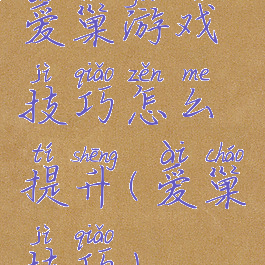 爱巢游戏
jì qiǎo zěn me
技巧怎么
tí shēng ài cháo
提升(爱巢
jì qiǎo
技巧)